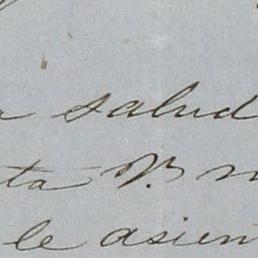 a salud
ta V. n
le asien